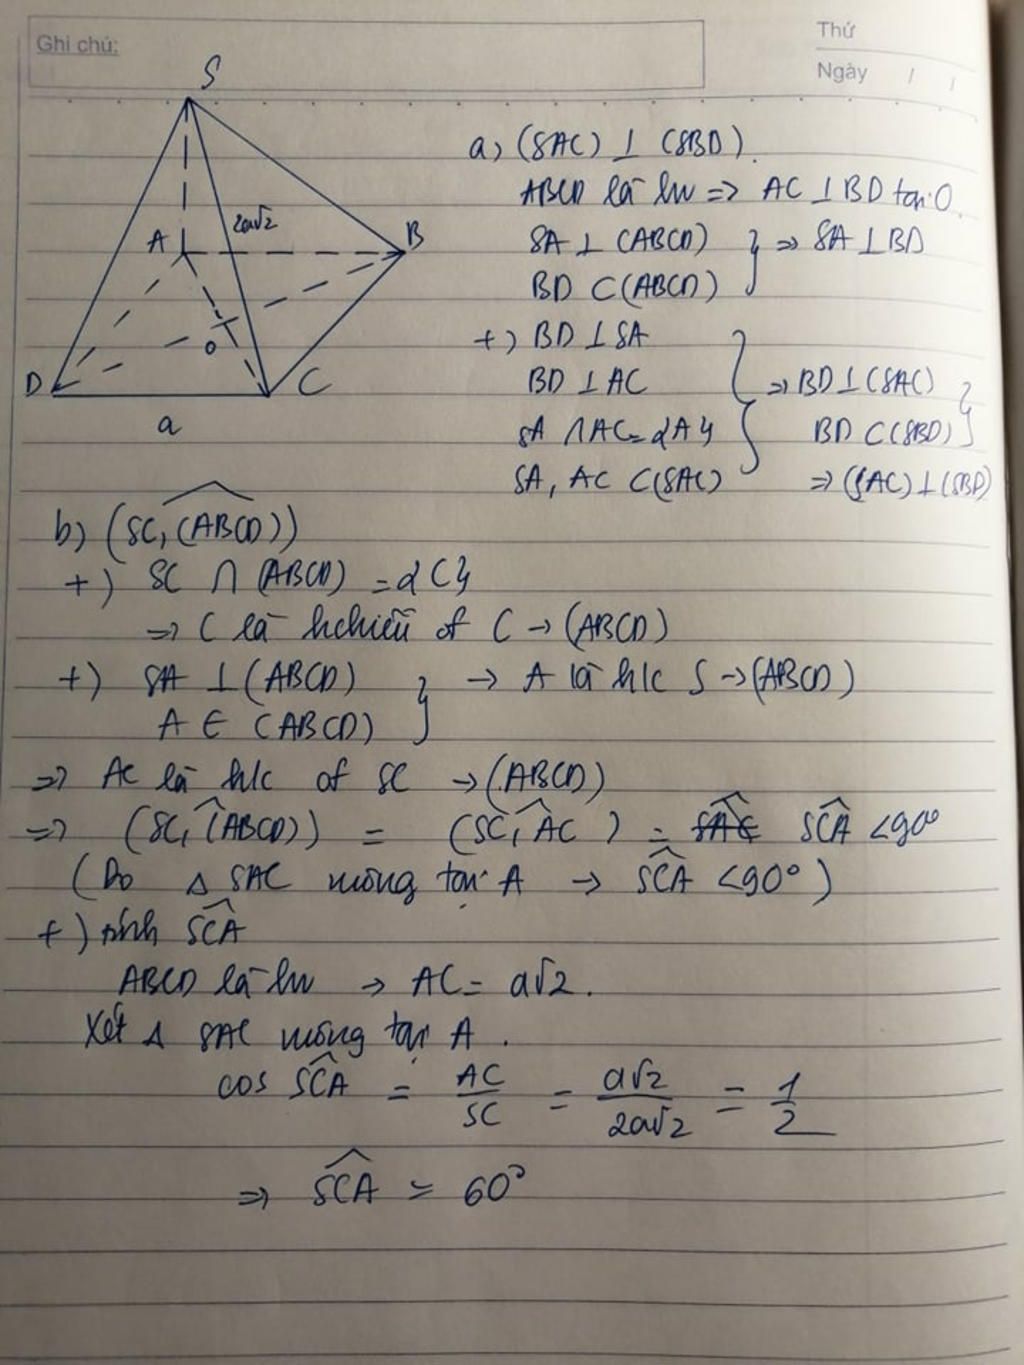 Ghi chú:
Thứ
Ngày / /
S
A
2a√2
B
O
D
C
a
a) (SAC) ⊥ (SBD).
ABCD là hv => AC ⊥ BD tại O.
SA ⊥ (ABCD) } => SA ⊥ BD
BD ⊂ (ABCD)
+) BD ⊥ SA
BD ⊥ AC => BD ⊥ (SAC)
SA ∩ AC = {A} BD ⊂ (SBD)
SA, AC ⊂ (SAC) => (SAC) ⊥ (SBD)
b) (SC, (ABCD))
+) SC ∩ (ABCD) = {C}
=> C là hchiếu of C → (ABCD)
+) SA ⊥ (ABCD) } → A là h/c S → (ABCD)
A ∈ (ABCD)
=> AC là h/c of SC → (ABCD)
=> (SC, (ABCD)) = (SC, AC) = SAC SCA < 90°
(Do Δ SAC vuông tại A → SCA < 90°)
+) tính SCA
ABCD là hv → AC = a√2.
Xét Δ SAC vuông tại A.
cos SCA = AC/SC = a√2/2a√2 = 1/2
=> SCA = 60°